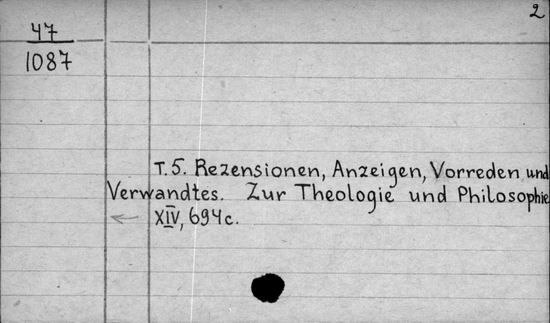 2
47
1087
T.5. Rezensionen, Anzeigen, Vorreden und
Verwandtes. Zur Theologie und Philosophie
XIV, 694с.